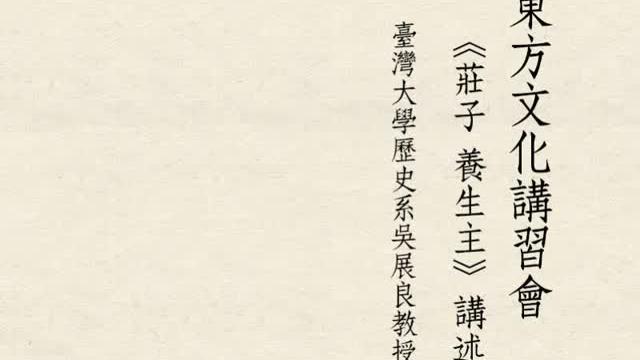 東方文化講習會
《莊子 養生主》 講述
臺灣大學歷史系吳展良教授